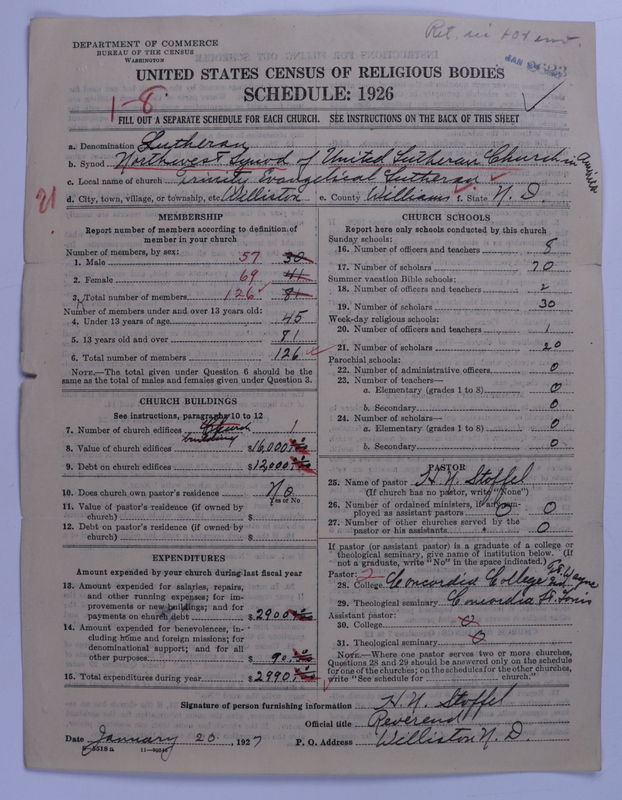 Ret. in
DEPARTMENT OF COMMERCE
BUREAU OF THE CENSUS
WASHINGTON
JAN
UNITED STATES CENSUS OF RELIGIOUS BODIES
SCHEDULE: 1926
1-8
FILL OUT A SEPARATE SCHEDULE FOR EACH CHURCH. SEE INSTRUCTIONS ON THE BACK OF THIS SHEET
a. Denomination Lutheran
b. Synod Northwest Synod of United Lutheran Church in America
c. Local name of church Trinity Evangelical Lutheran
d. City, town, village, or township, etc. Williston e. County Williams f. State N. D.
MEMBERSHIP
Report number of members according to definition of
member in your church
Number of members, by sex:
1. Male 57 30
2. Female 69 41
3. Total number of members 126 81
Number of members under and over 13 years old:
4. Under 13 years of age 45
5. 13 years old and over 81
6. Total number of members 126
NOTE.—The total given under Question 6 should be the
same as the total of males and females given under Question 3.
CHURCH BUILDINGS
See instructions, paragraphs 10 to 12
7. Number of church edifices Church building 1
8. Value of church edifices $16,000
9. Debt on church edifices $12,000
10. Does church own pastor's residence No
Yes or No
11. Value of pastor's residence (if owned by
church) $
12. Debt on pastor's residence (if owned by
church) $
EXPENDITURES
Amount expended by your church during last fiscal year
13. Amount expended for salaries, repairs,
and other running expenses; for im-
provements or new buildings; and for
payments on church debt $2900
14. Amount expended for benevolences, in-
cluding home and foreign missions; for
denominational support; and for all
other purposes $90
15. Total expenditures during year $2990
CHURCH SCHOOLS
Report here only schools conducted by this church
Sunday schools:
16. Number of officers and teachers 8
17. Number of scholars 70
Summer vacation Bible schools:
18. Number of officers and teachers 2
19. Number of scholars 30
Week-day religious schools:
20. Number of officers and teachers 1
21. Number of scholars 20
Parochial schools:
22. Number of administrative officers 0
23. Number of teachers—
a. Elementary (grades 1 to 8) 0
b. Secondary 0
24. Number of scholars—
a. Elementary (grades 1 to 8) 0
b. Secondary 0
PASTOR
25. Name of pastor H. N. Stoffel
(If church has no pastor, write "None")
26. Number of ordained ministers, if any, em-
ployed as assistant pastors 0 0
27. Number of other churches served by
pastor or his assistants 0
If pastor (or assistant pastor) is a graduate of a college or
theological seminary, give name of institution below. (If
not a graduate, write "No" in the space indicated.)
Pastor:
28. College Concordia College Ft. Wayne Ind.
29. Theological seminary Concordia St. Louis
Assistant pastor:
30. College 0
31. Theological seminary 0
NOTE.—Where one pastor serves two or more churches,
Questions 28 and 29 should be answered only on the schedule
for one of the churches; on the schedules for the other churches,
write "See schedule for church."
Signature of person furnishing information H. N. Stoffel
Official title Reverend
Date January 20, 1927 P. O. Address Williston N. D.